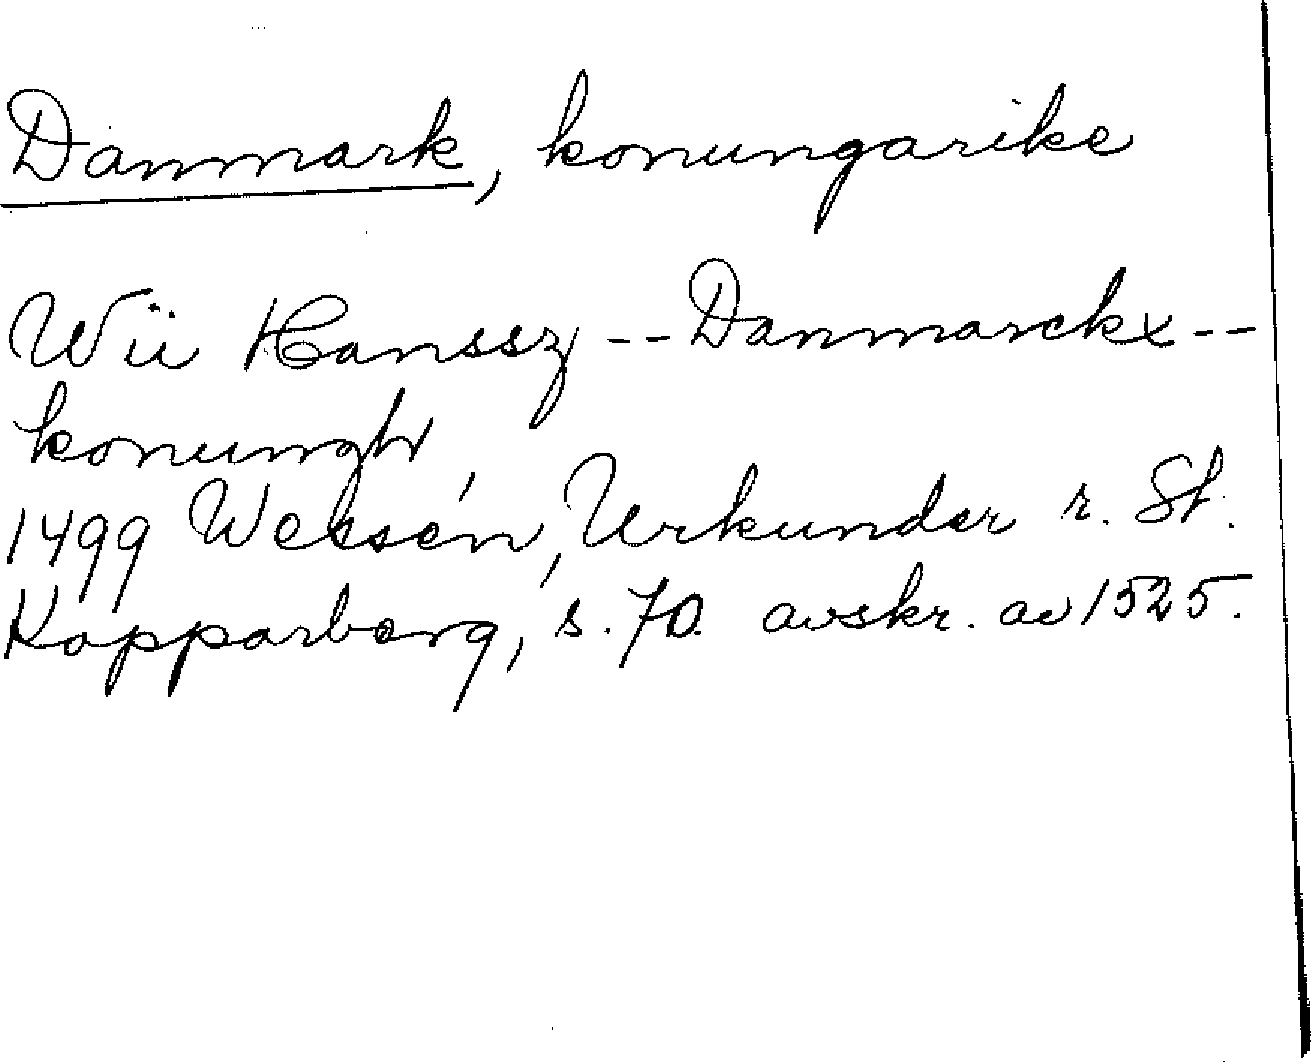 Danmark, konungarike
Wii Hanssz -- Danmarckx --
konungh,
1499 Wessén, Urkunder r. St.
Kopparberg, s. 70. avskr. av 1525.